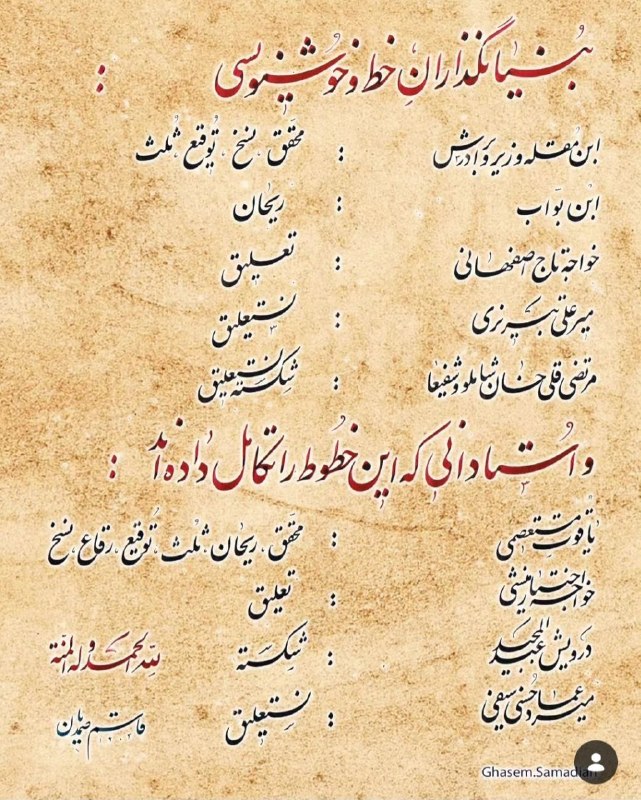 بنیانگذارانِ خط و خوشنویسی :
ابن مُقله وزیر و برادرش : محقّق، نسخ، توقیع، ثلث
ابن بوّاب : ریحان
خواجه تاج اصفهانی : تعلیق
میرعلی تبریزی : نستعلیق
مرتضی قلی خان شاملو و شفیعا : شکسته نستعلیق
و اُستادانی که این خطوط را تکامل داده‌اند :
یاقوت مستعصمی : محقّق، ریحان، ثلث، توقیع، رقاع، نسخ
خواجه اختیار منشی : تعلیق
درویش عبدالمجید : شکسته
میرعماد حسنی سیفی : نستعلیق
لله الحمد و له المنّة
قاسم صمدیان
Ghasem.Samadian